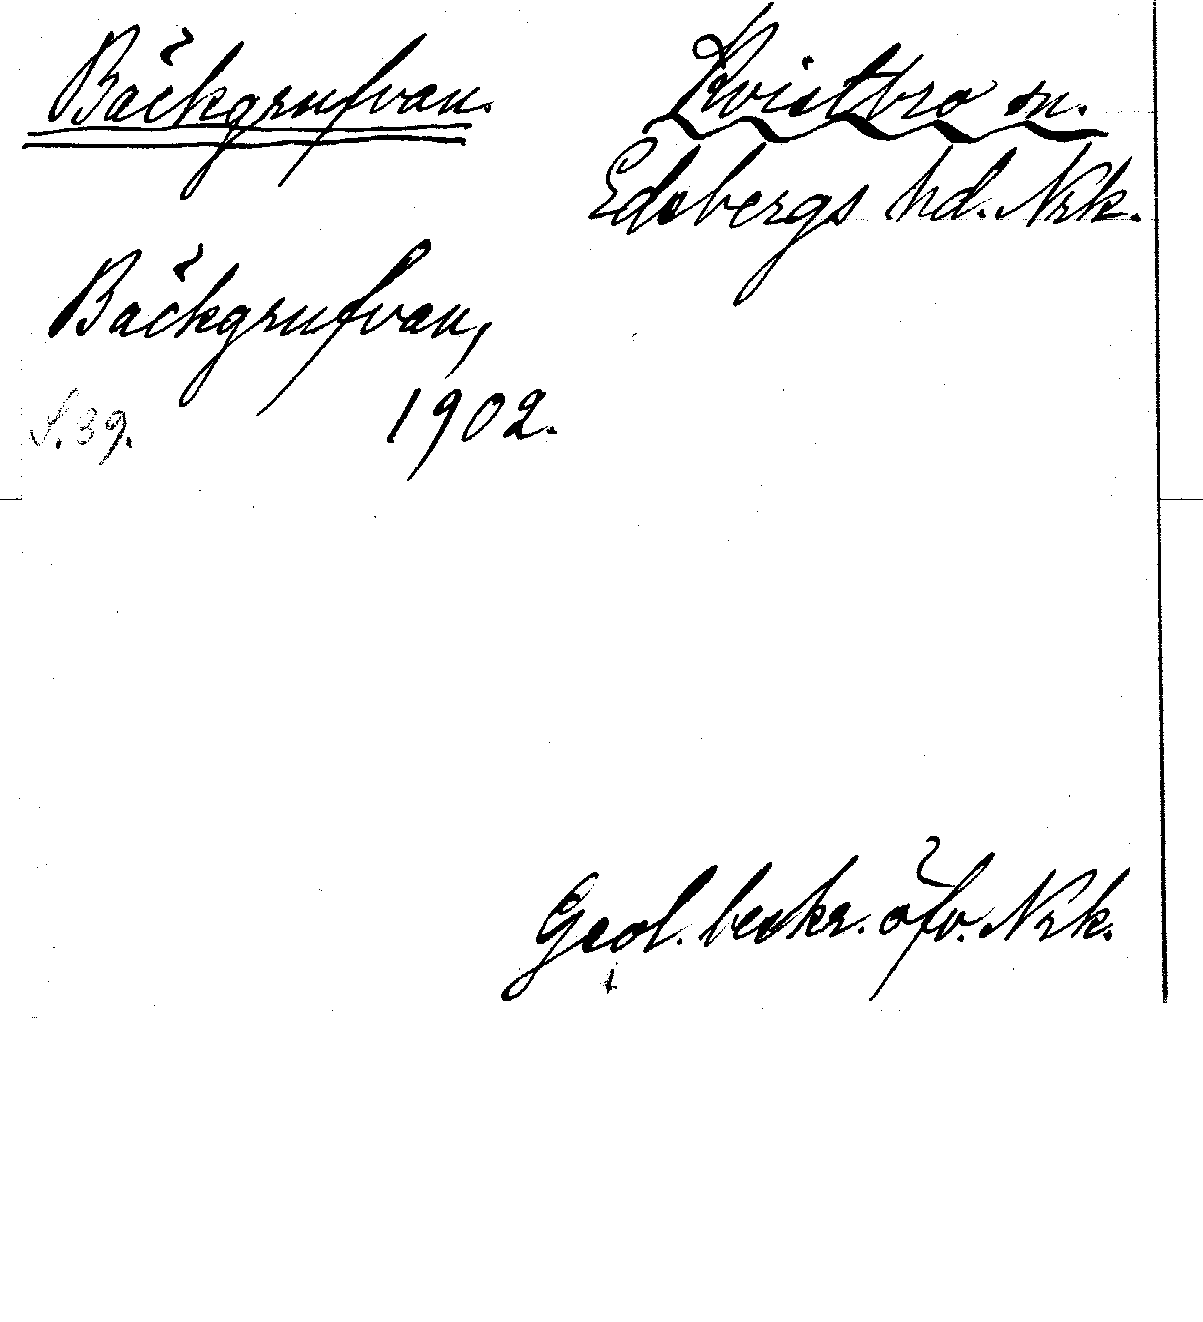 Bäckgrufvan.
Kvistbro sn.
Edsbergs hd. Nrk.
Bäckgrufvan,
S. 39. 1902.
Geol. beskr. öfv. Nrk.